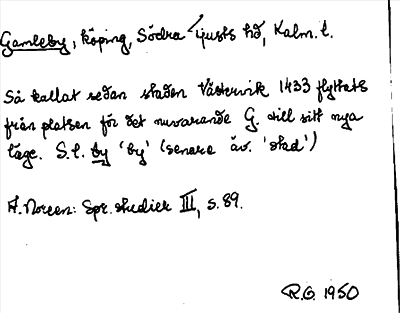 Gamleby, köping, Södra Tjusts hd, Kalm. l.
Så kallat sedan staden Västervik 1433 flyttats
från platsen för det nuvarande G. till sitt nya
läge. S. l. by 'by' (senare äv. 'stad')
A. Noreen: Spr. studier III, s. 89.
R.G. 1950